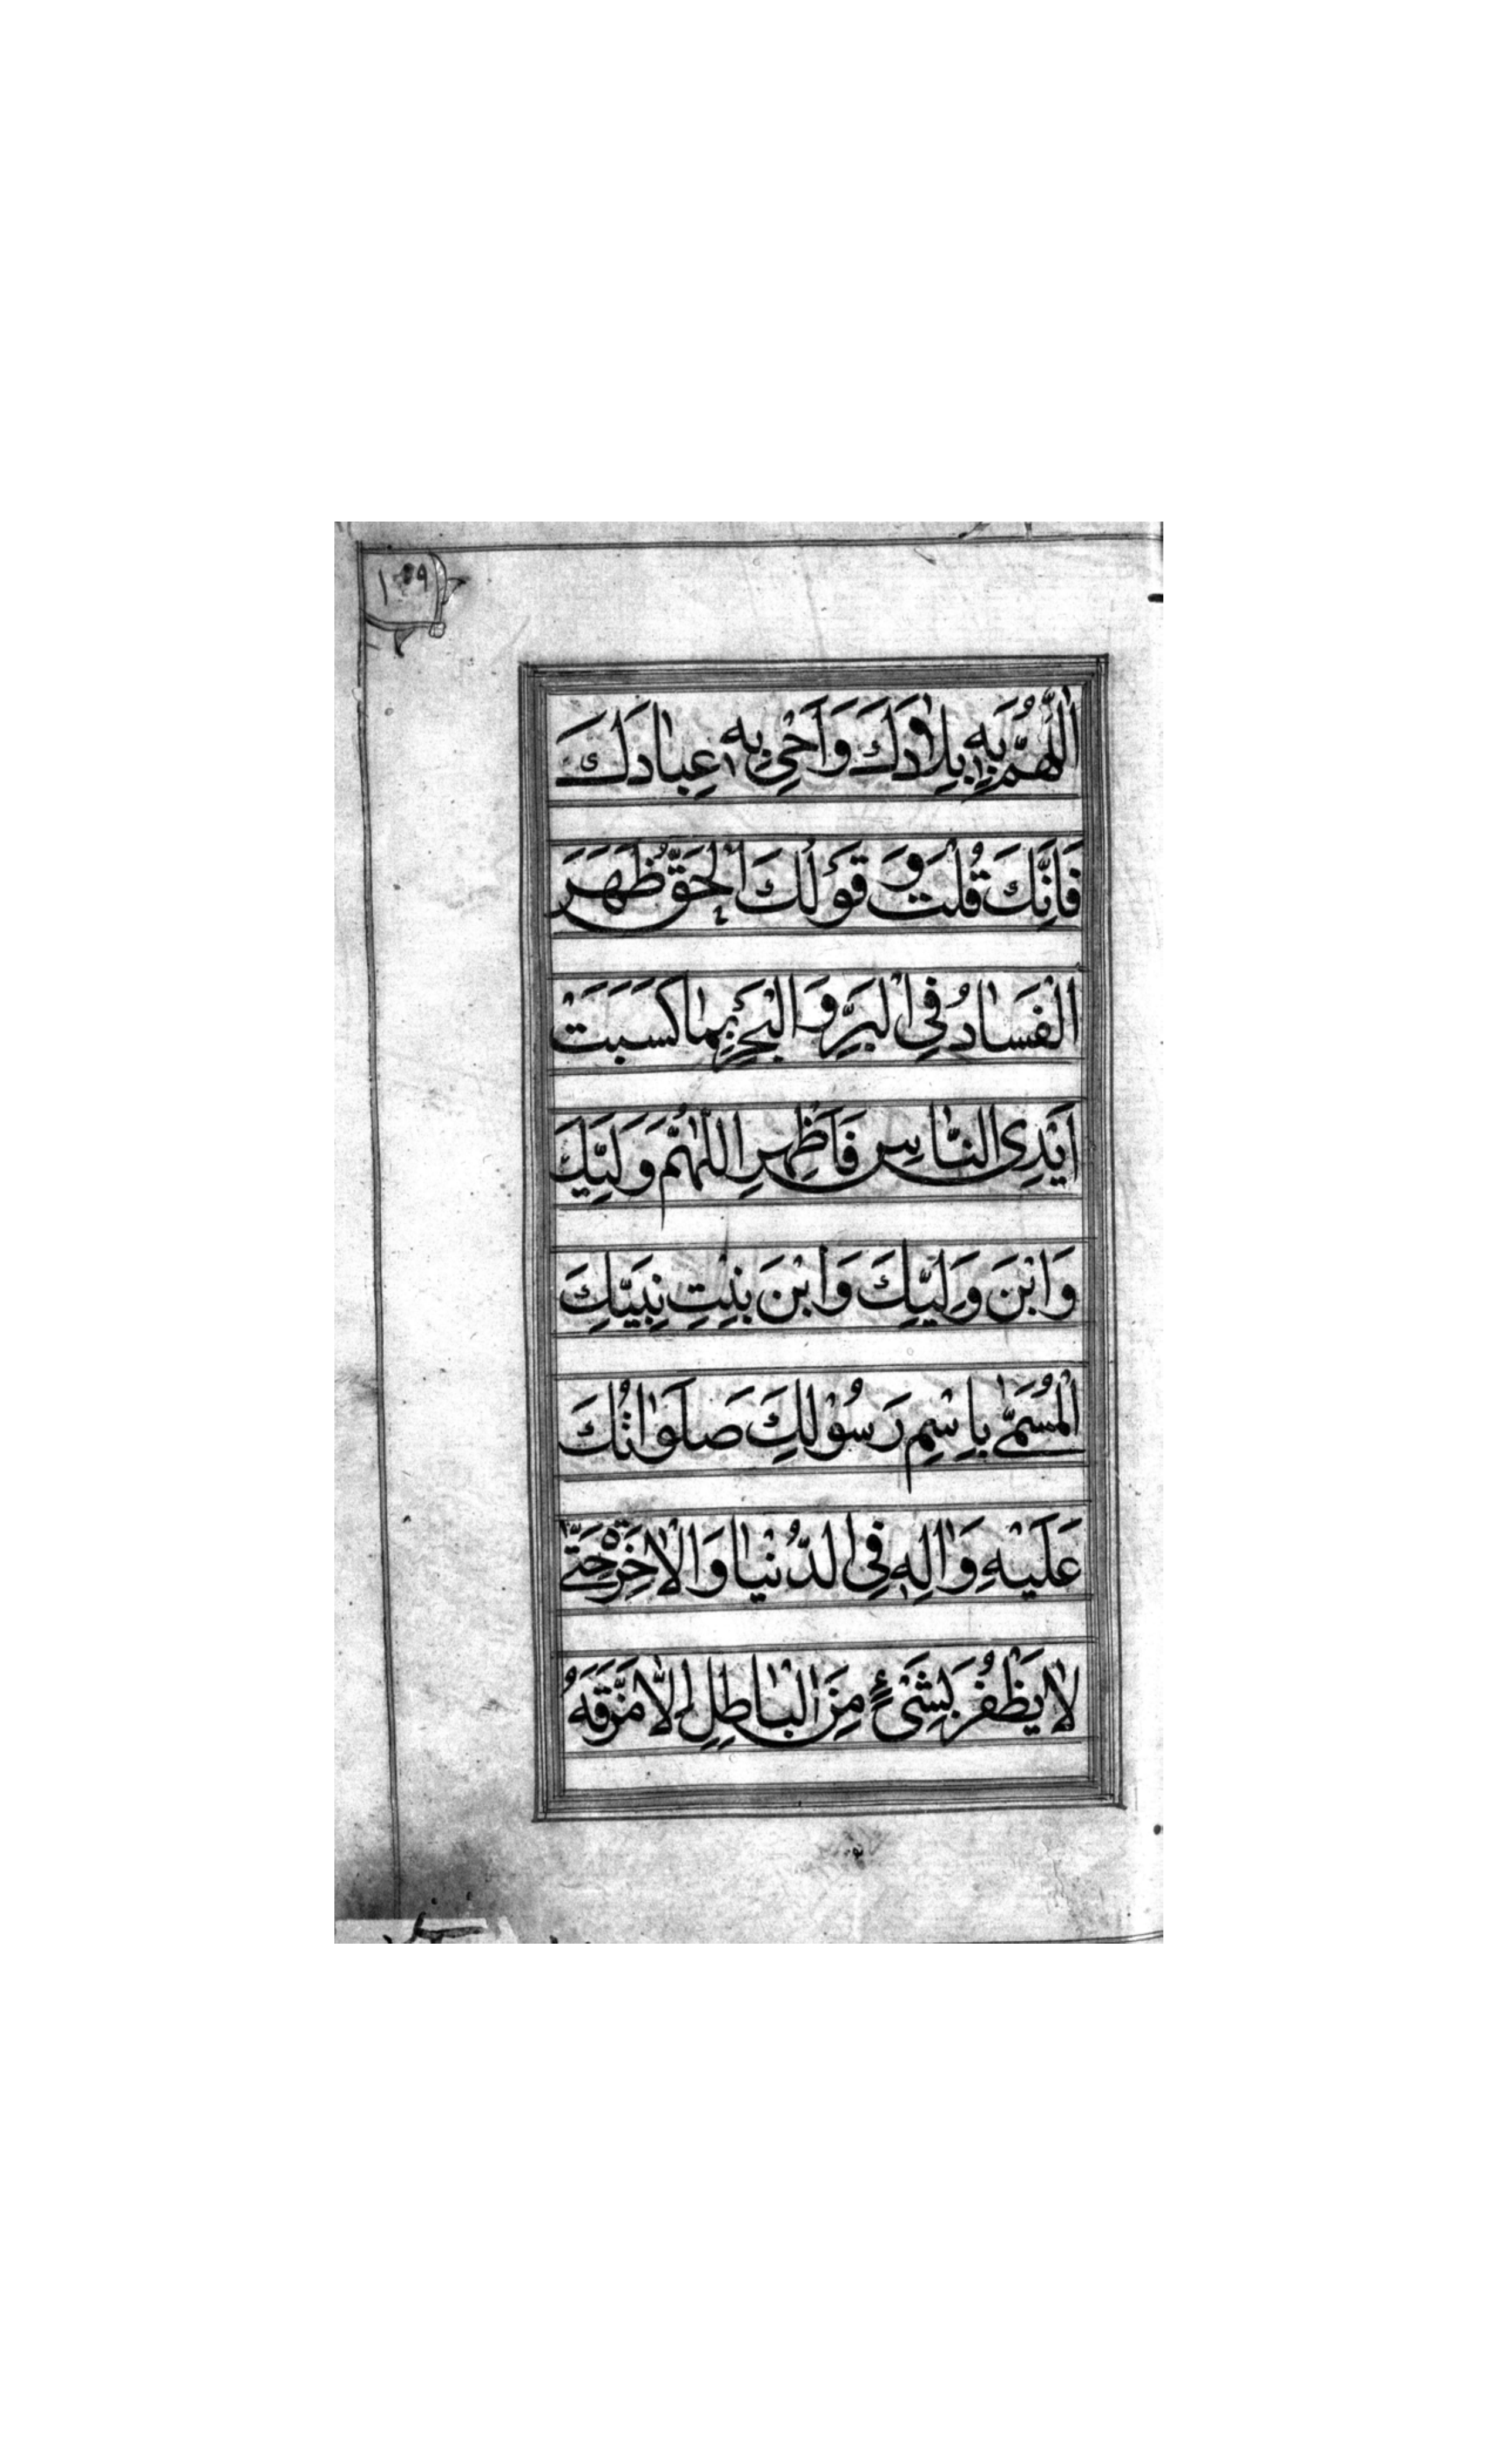 اَللّٰهُمَّ بِهِ بِلَادَكَ وَاَحْيِ بِهِ عِبَادَكَ
فَاِنَّكَ قُلْتَ وَ قَوْلُكَ الْحَقُّ ظَهَرَ
الْفَسَادُ فِي الْبَرِّ وَ الْبَحْرِ بِمَا كَسَبَتْ
اَيْدِي النَّاسِ فَاَظْهِرِ اللّٰهُمَّ وَلِيَّكَ
وَابْنَ وَلِيِّكَ وَابْنَ بِنْتِ نَبِيِّكَ
الْمُسَمّٰى بِاسْمِ رَسُوْلِكَ صَلَوَاتُكَ
عَلَيْهِ وَاٰلِهِ فِي الدُّنْيَا وَالْاٰخِرَةِ حَتّٰى
لَا يَظْفُرَ بِشَيْءٍ مِنَ الْبَاطِلِ اِلَّا مَزَّقَهُ